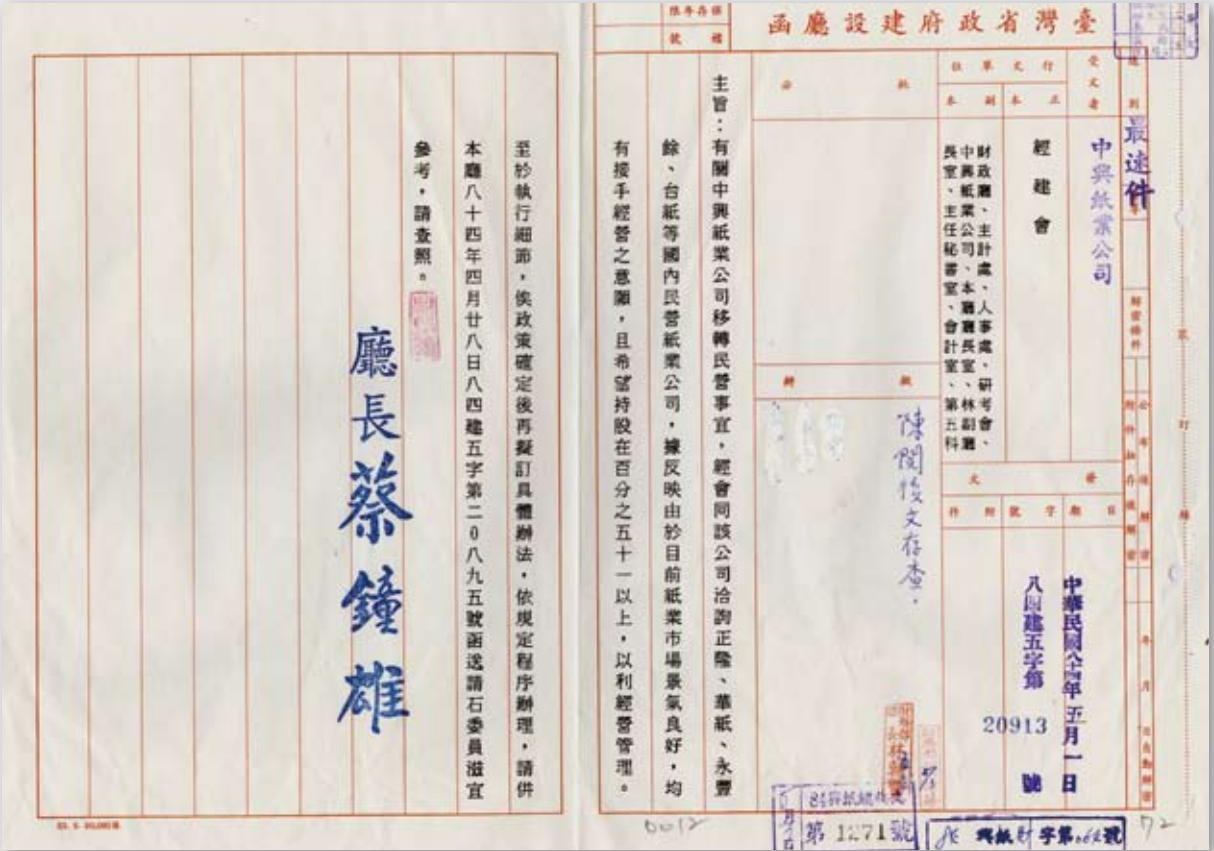 臺灣省政府建設廳函
保存年限
檔號
速別
最速件
受文者
中興紙業公司
行文單位
正本
經建會
副本
財政廳、主計處、人事處、研考會、
中興紙業公司、本廳廳長室、林副廳
長室、主任秘書室、會計室、第五科
發文
日期
中華民國八十四年五月一日
字號
八四建五字第
20913
號
附件
批示
擬辦
陳閱後文存查。
主旨:有關中興紙業公司移轉民營事宜,經會同該公司洽詢正隆、華紙、永豐
餘、台紙等國內民營紙業公司,據反映由於目前紙業市場景氣良好,均
有接手經營之意願,且希望持股在百分之五十一以上,以利經營管理。
至於執行細節,俟政策確定後再擬訂具體辦法,依規定程序辦理,請供
本廳八十四年四月廿八日八四建五字第二0八九五號函送請石委員滋宜
參考,請查照。
廳長蔡鐘雄
第1271號
興紙財字第
號
0012
72